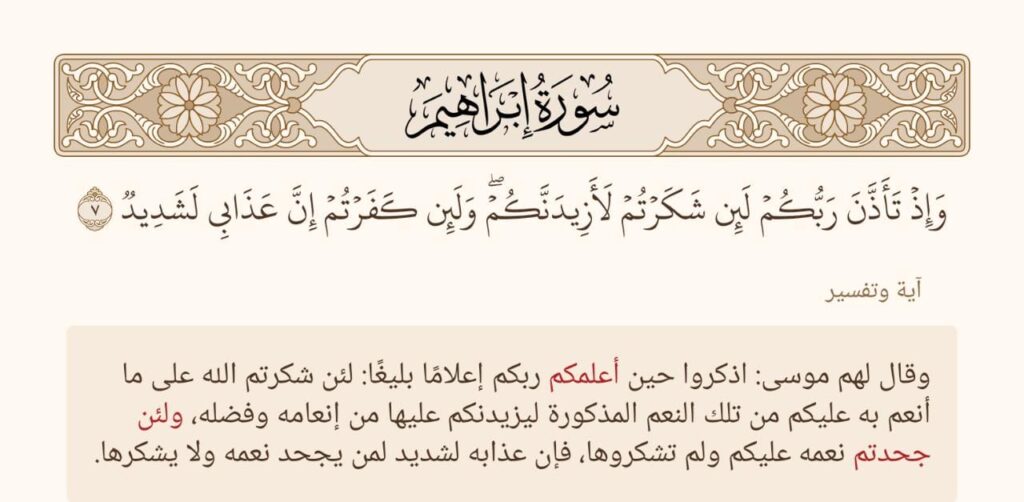 سُورَةُ إِبْرَاهِيمَ
وَإِذۡ تَأَذَّنَ رَبُّكُمۡ لَئِن شَكَرۡتُمۡ لَأَزِيدَنَّكُمۡۖ وَلَئِن كَفَرۡتُمۡ إِنَّ عَذَابِي لَشَدِيدٞ ٧
آية وتفسير
وقال لهم موسى: اذكروا حين أعلمكم ربكم إعلامًا بليغًا: لئن شكرتم الله على ما
أنعم به عليكم من تلك النعم المذكورة ليزيدنكم عليها من إنعامه وفضله، ولئن
جحدتم نعمه عليكم ولم تشكروها، فإن عذابه لشديد لمن يجحد نعمه ولا يشكرها.